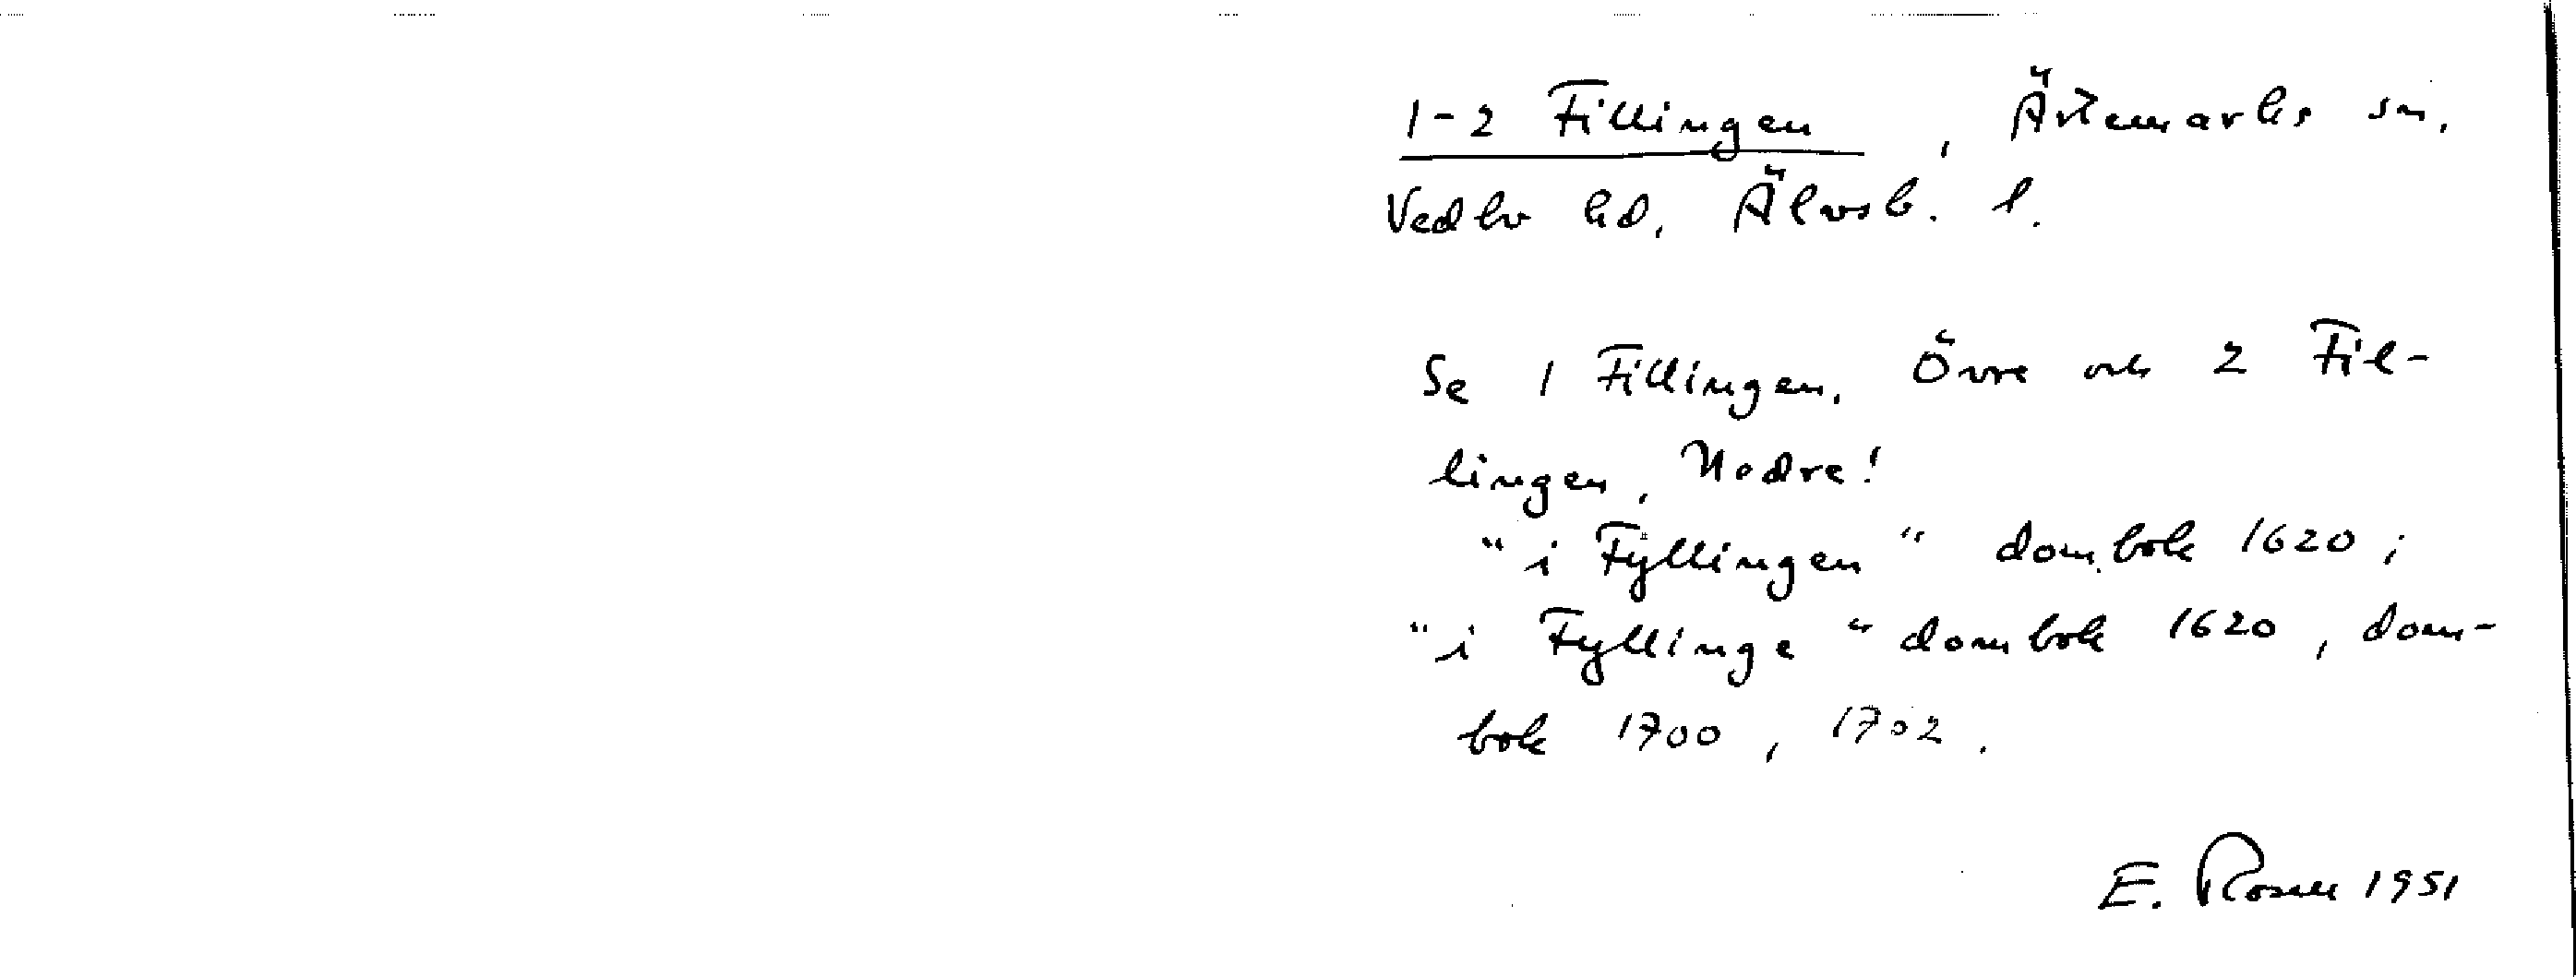 1-2 Fillingen, Ärtemarks sn.
Vedbo hd, Älvsb. l.
Se 1 Fillingen, Övre och 2 Fil-
lingen, Nedre!
"i Fÿllingen" dombok 1620;
"i Fyllinge" dombok 1620, dom-
bok 1700, 1702.
E. Rosell 1951